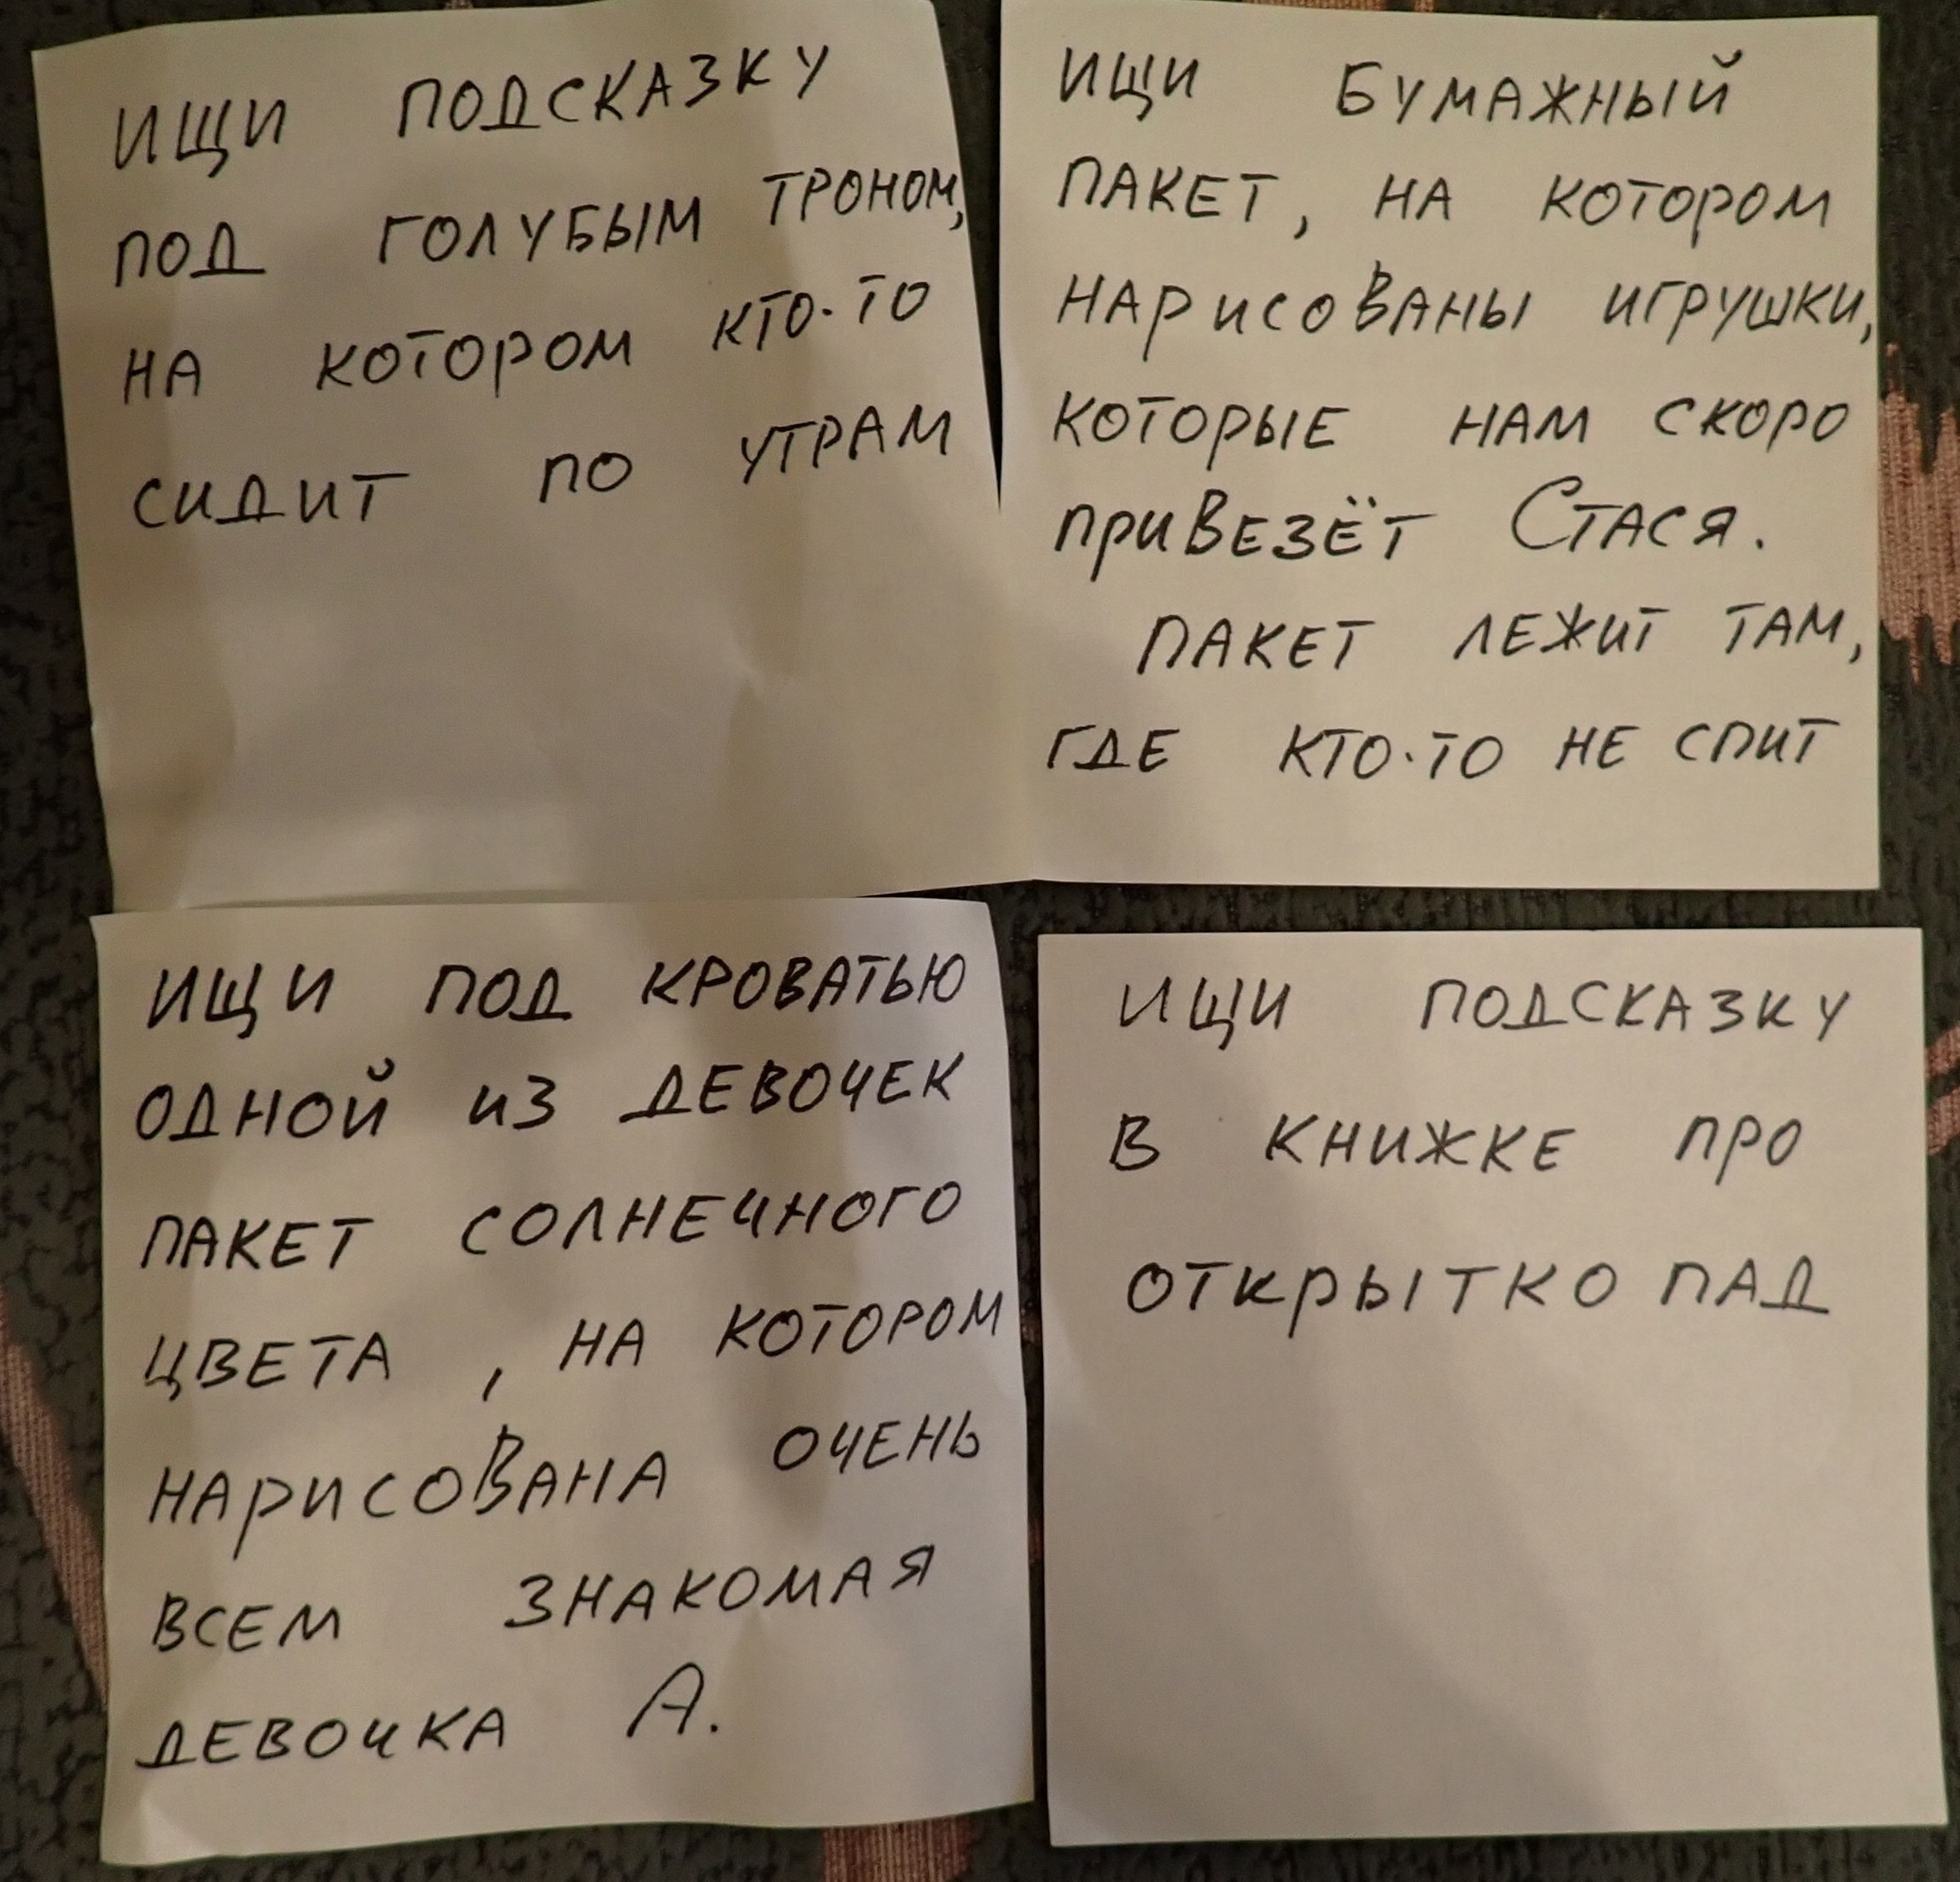 ИЩИ ПОДСКАЗКУ
ПОД ГОЛУБЫМ ТРОНОМ,
НА КОТОРОМ КТО-ТО
СИДИТ ПО УТРАМ
ИЩИ БУМАЖНЫЙ
ПАКЕТ, НА КОТОРОМ
НАРИСОВАНЫ ИГРУШКИ,
КОТОРЫЕ НАМ СКОРО
ПРИВЕЗЁТ СТАСЯ.
ПАКЕТ ЛЕЖИТ ТАМ,
ГДЕ КТО-ТО НЕ СПИТ
ИЩИ ПОД КРОВАТЬЮ
ОДНОЙ ИЗ ДЕВОЧЕК
ПАКЕТ СОЛНЕЧНОГО
ЦВЕТА , НА КОТОРОМ
НАРИСОВАНА ОЧЕНЬ
ВСЕМ ЗНАКОМАЯ
ДЕВОЧКА А.
ИЩИ ПОДСКАЗКУ
В КНИЖКЕ ПРО
ОТКРЫТКОПАД